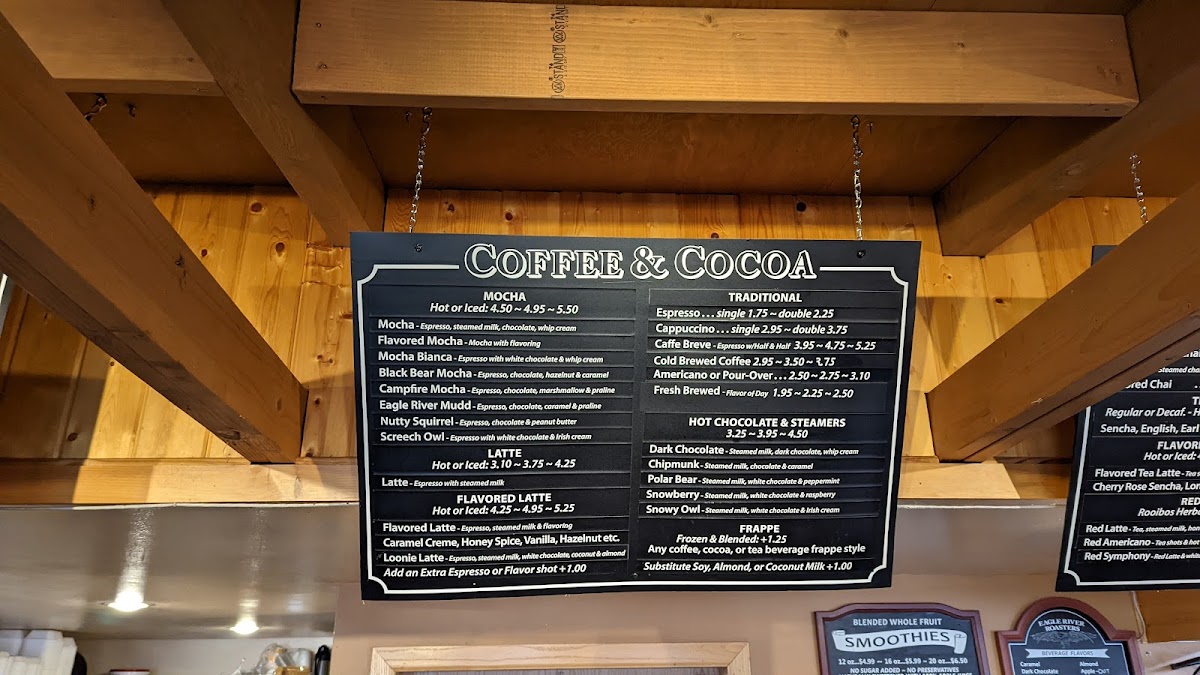 STAND
COFFEE & COCOA
MOCHA
Hot or Iced: 4.50 ~ 4.95 ~ 5.50
Mocha - Espresso, steamed milk, chocolate, whip cream
Flavored Mocha - Mocha with flavoring
Mocha Bianca - Espresso with white chocolate & whip cream
Black Bear Mocha - Espresso, chocolate, hazelnut & caramel
Campfire Mocha - Espresso, chocolate, marshmallow & praline
Eagle River Mudd - Espresso, chocolate, caramel & praline
Nutty Squirrel - Espresso, chocolate & peanut butter
Screech Owl - Espresso with white chocolate & Irish cream
LATTE
Hot or Iced: 3.10 ~ 3.75 ~ 4.25
Latte - Espresso with steamed milk
FLAVORED LATTE
Hot or Iced: 4.25 ~ 4.95 ~ 5.25
Flavored Latte - Espresso, steamed milk & flavoring
Caramel Creme, Honey Spice, Vanilla, Hazelnut etc.
Loonie Latte - Espresso, steamed milk, white chocolate, coconut & almond
Add an Extra Espresso or Flavor shot +1.00
TRADITIONAL
Espresso . . . single 1.75 ~ double 2.25
Cappuccino . . . single 2.95 ~ double 3.75
Caffe Breve - Espresso w/Half & Half 3.95 ~ 4.75 ~ 5.25
Cold Brewed Coffee 2.95 ~ 3.50 ~ 3.75
Americano or Pour-Over . . . 2.50 ~ 2.75 ~ 3.10
Fresh Brewed - Flavor of Day 1.95 ~ 2.25 ~ 2.50
HOT CHOCOLATE & STEAMERS
3.25 ~ 3.95 ~ 4.50
Dark Chocolate - Steamed milk, dark chocolate, whip cream
Chipmunk - Steamed milk, chocolate & caramel
Polar Bear - Steamed milk, white chocolate & peppermint
Snowberry - Steamed milk, white chocolate & raspberry
Snowy Owl - Steamed milk, white chocolate & Irish cream
FRAPPE
Frozen & Blended: +1.25
Any coffee, cocoa, or tea beverage frappe style
Substitute Soy, Almond, or Coconut Milk +1.00
Chai
Regular or Decaf. - H
Sencha, English, Earl
FLAVOR
Hot or Iced: 4
Flavored Tea Latte - Tea s
Cherry Rose Sencha, Lon
RED
Rooibos Herb
Red Latte - Tea, steamed milk, hon
Red Americano - Tea shots & hot
Red Symphony - Red Latte & whit
BLENDED WHOLE FRUIT
SMOOTHIES
12 oz...$4.99 ~ 16 oz...$5.99 ~ 20 oz...$6.50
NO SUGAR ADDED ~ NO PRESERVATIVES
EAGLE RIVER
ROASTERS
BEVERAGE FLAVORS
Caramel
Dark Chocolate
Almond
Apple